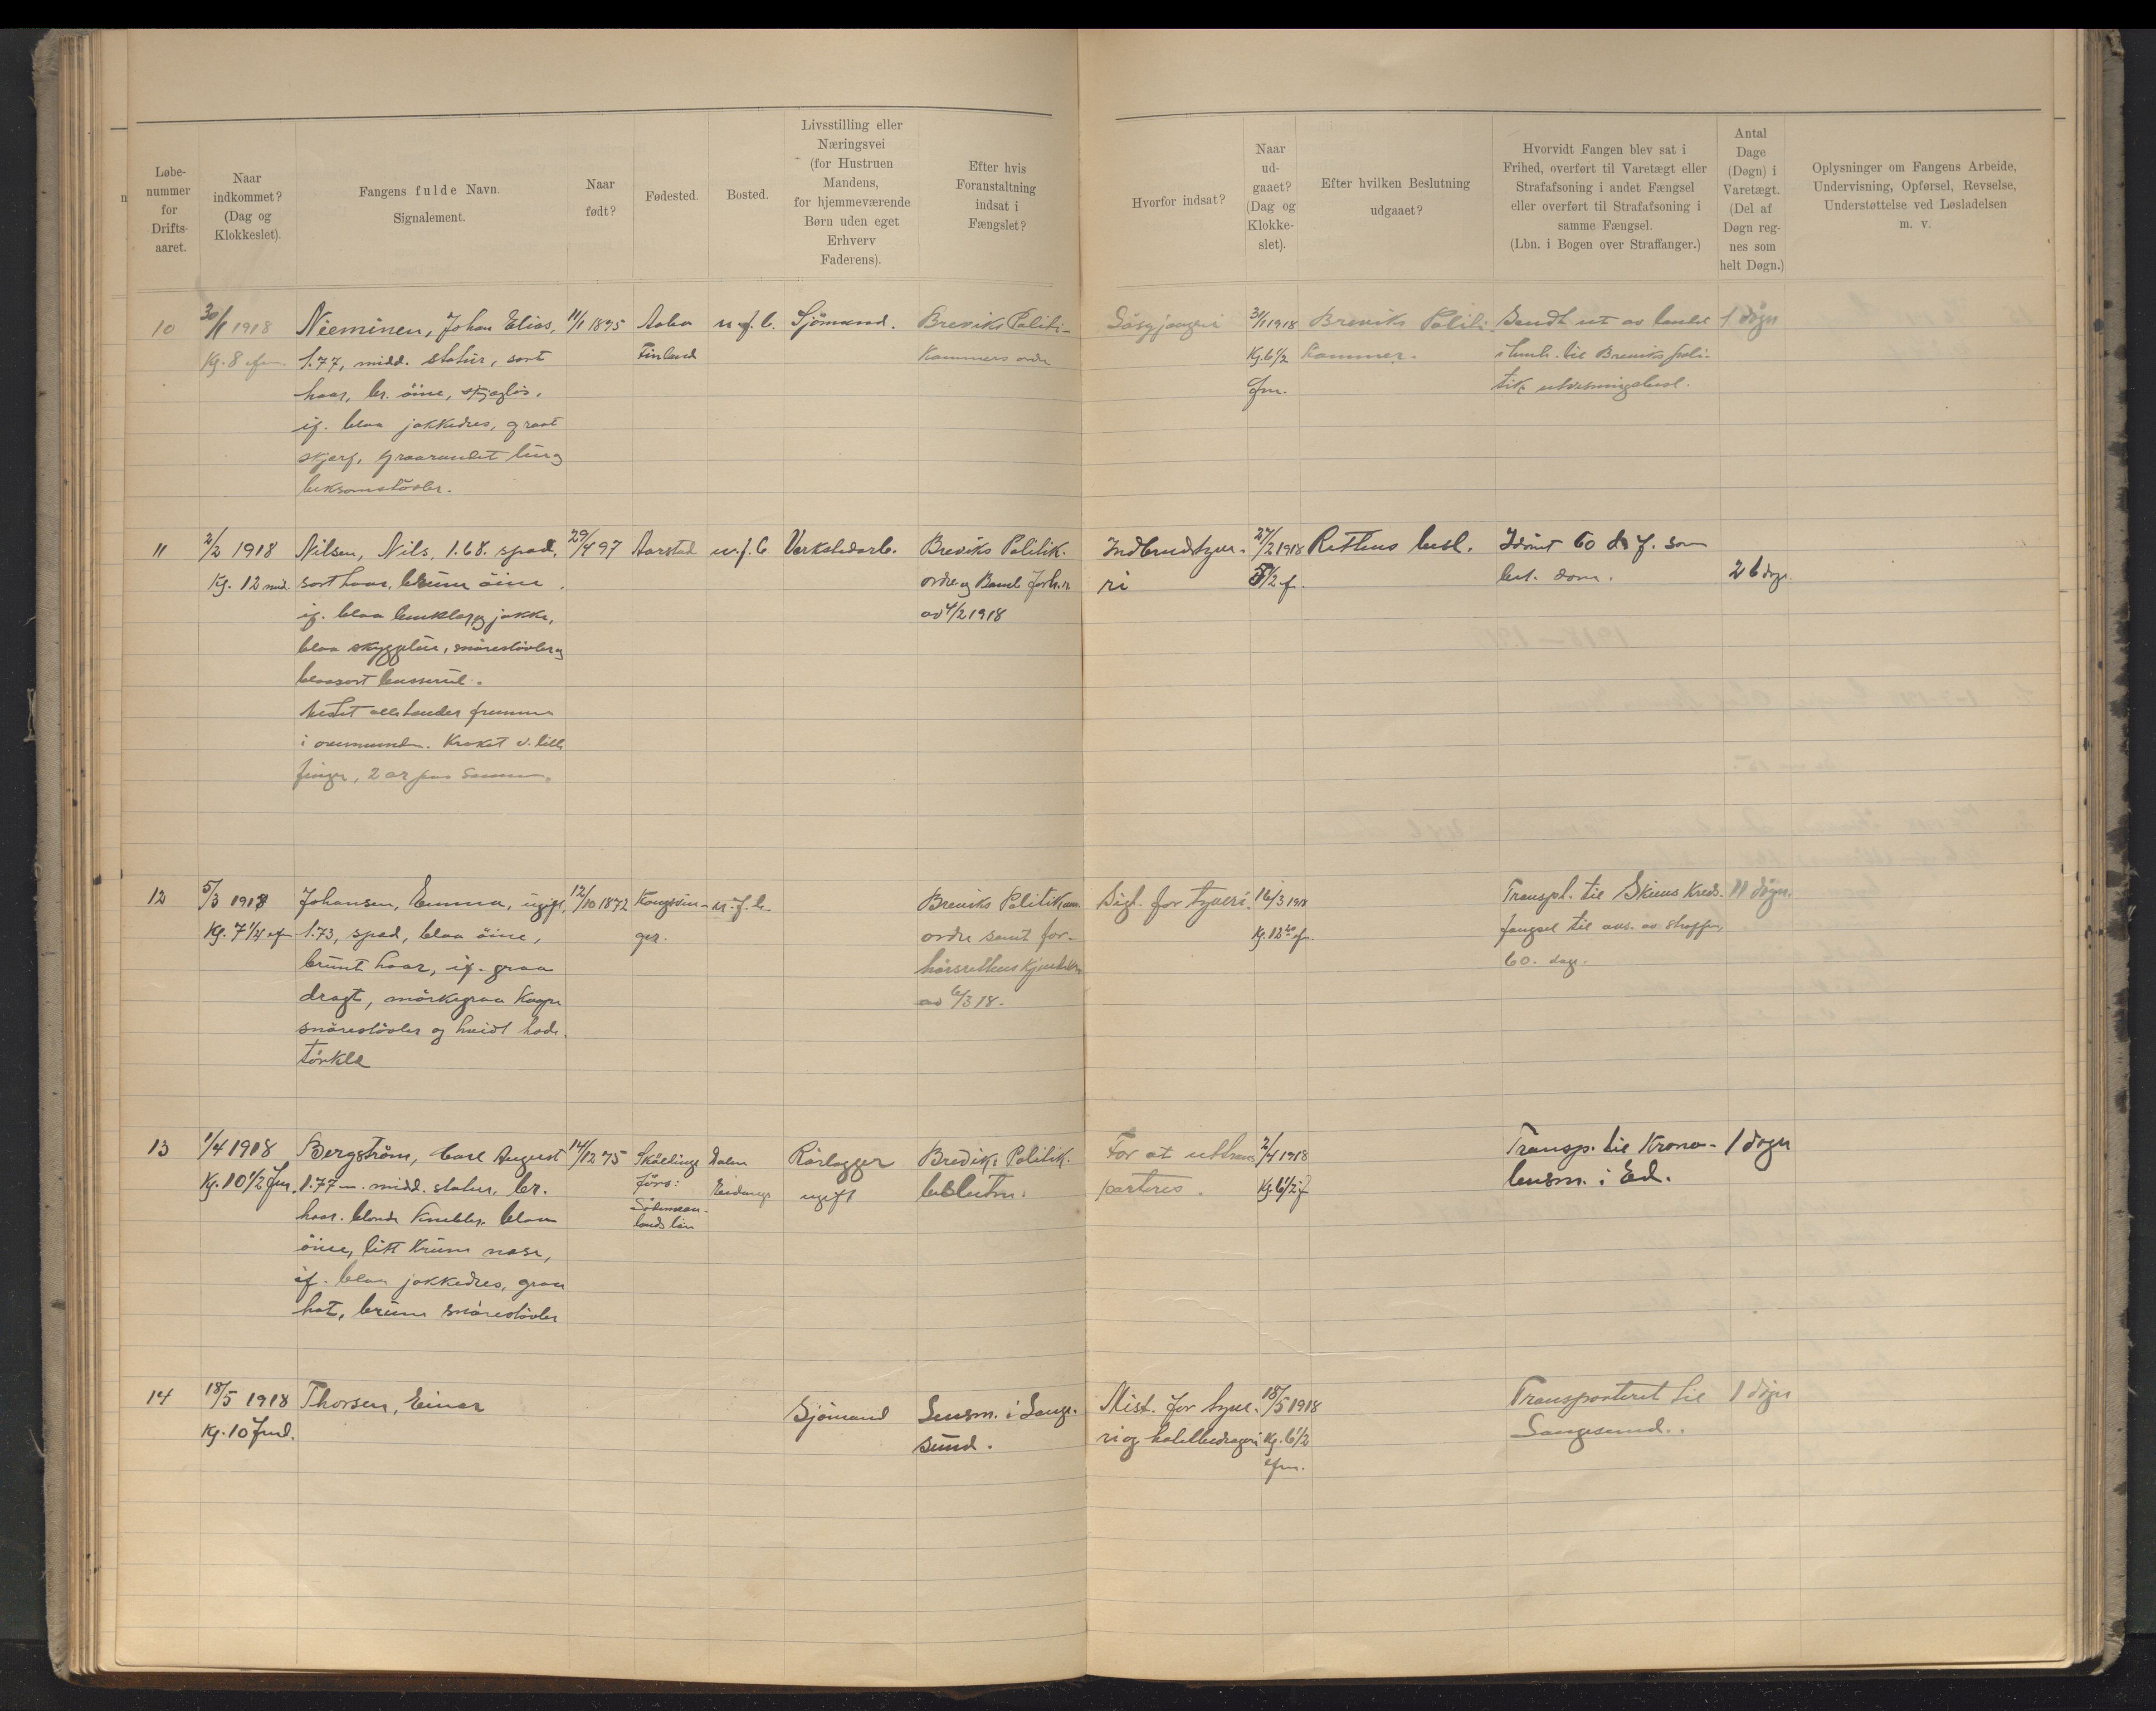 Løbe-
nummer
for
Drifts-
aaret.
Naar
indkommet?
(Dag og
Klokkeslet).
Fangens fulde Navn.
Signalement.
Naar
født?
Fødested.
Bosted.
Livsstilling eller
Næringsvei
(for Hustruen
Mandens,
for hjemmeværende
Børn uden eget
Erhverv
Faderens).
Efter hvis
Foranstaltning
indsat i
Fængslet?
Hvorfor indsat?
Naar
ud-
gaaet?
(Dag og
Klokke-
slet).
Efter hvilken Beslutning
udgaaet?
Hvorvidt Fangen blev sat i
Frihed, overført til Varetægt eller
Strafafsoning i andet Fængsel
eller overført til Strafafsoning i
samme Fængsel.
(Lbn. i Bogen over Straffanger.)
Antal
Dage
(Døgn) i
Varetægt.
(Del af
Døgn reg-
nes som
helt Døgn.)
Oplysninger om Fangens Arbeide,
Undervisning, Opførsel, Revselse,
Understøttelse ved Løsladelsen
m. v.
10
30/1 1918
Kg. 8 efm.
Nieminen, Johan Elias,
1.77, midd. statur, sort
haar, br. öine, skjegløs.
if. blaa jakkedres, graat
skjerf, graarandet lue og
beksomstövler.
11/1 1895
Aabo
Finland
u. f. b.
Sjömand.
Breviks Politi-
kammers ordre
31/1 1918
Kg. 6 1/2
efm.
Breviks Politi-
kammer.
Sendt ut av landet
i henh. til Breviks poli-
tik. utvisningsbesl.
1 dögn
11
2/2 1918
Kg. 12 mid.
Nilsen, Nils, 1.68. spæd,
sort haar, brune öine.
if. blaa benklær og jakke,
blaa skyggelue, snörestövler og
blaasort busserul.
i overmunden. Kroket v. lille
finger, 2 ar paa samme.
29/4 97
Aarstad
u. f. b.
Verkstedarb.
Breviks Politik.
ordre og Bamb. forh. r.
av 4/2 1918
Indbrudstyve-
ri
27/2 1918
5 1/2 ef.
Rettens besl.
Idömt 60 d. f. som
bet. dom.
26 dög.
12
5/3 1918
Kg. 7 1/4 ef
Johansen, Emma, ugift,
1.73, spæd, blaa öine,
brunt haar, if. graa
dragt, mörkegraa kaape
snörestövler og hvidt hode-
törklæ
12/10 1872
Kongsvin-
ger.
u. f. b.
Breviks Politikam.
ordre samt for-
hörsrettens kjendelse
av 6/3 18.
Sigt. for tyveri.
16/3 1918
Kg. 12 ef.
Transpt. til Skiens Kreds-
fængsel til avs. av straffen,
60. dage.
11 dögn.
13
1/4 1918
Kg. 10 1/2 fm.
Bergström, Carl August
1.77 m. midd. statur, br.
haar. blonde knebler. blaa
öine, litt krum næse,
if. blaa jakkedres, graa
hat, brune snörestövler
14/12 75
Skällinge
förs:
Södermann-
lands län
Dalen
Eidanger
Rörlægger
ugift
Breviks Politik.
beslutn.
For at uttrans-
porteres.
2/4 1918
Kg. 6 1/2 f
Transp. til Krono-
lensm. i Ed.
1 dögn
14
18/5 1918
Kg. 10 fmd.
Thorsen, Einar
Sjömand
Lensm. i Lange-
sund.
Mist. for tyve-
ri og hotelbedrageri
18/5 1918
Kg. 6 1/2
efm.
Transporteret til
Langesund.
1 dögn